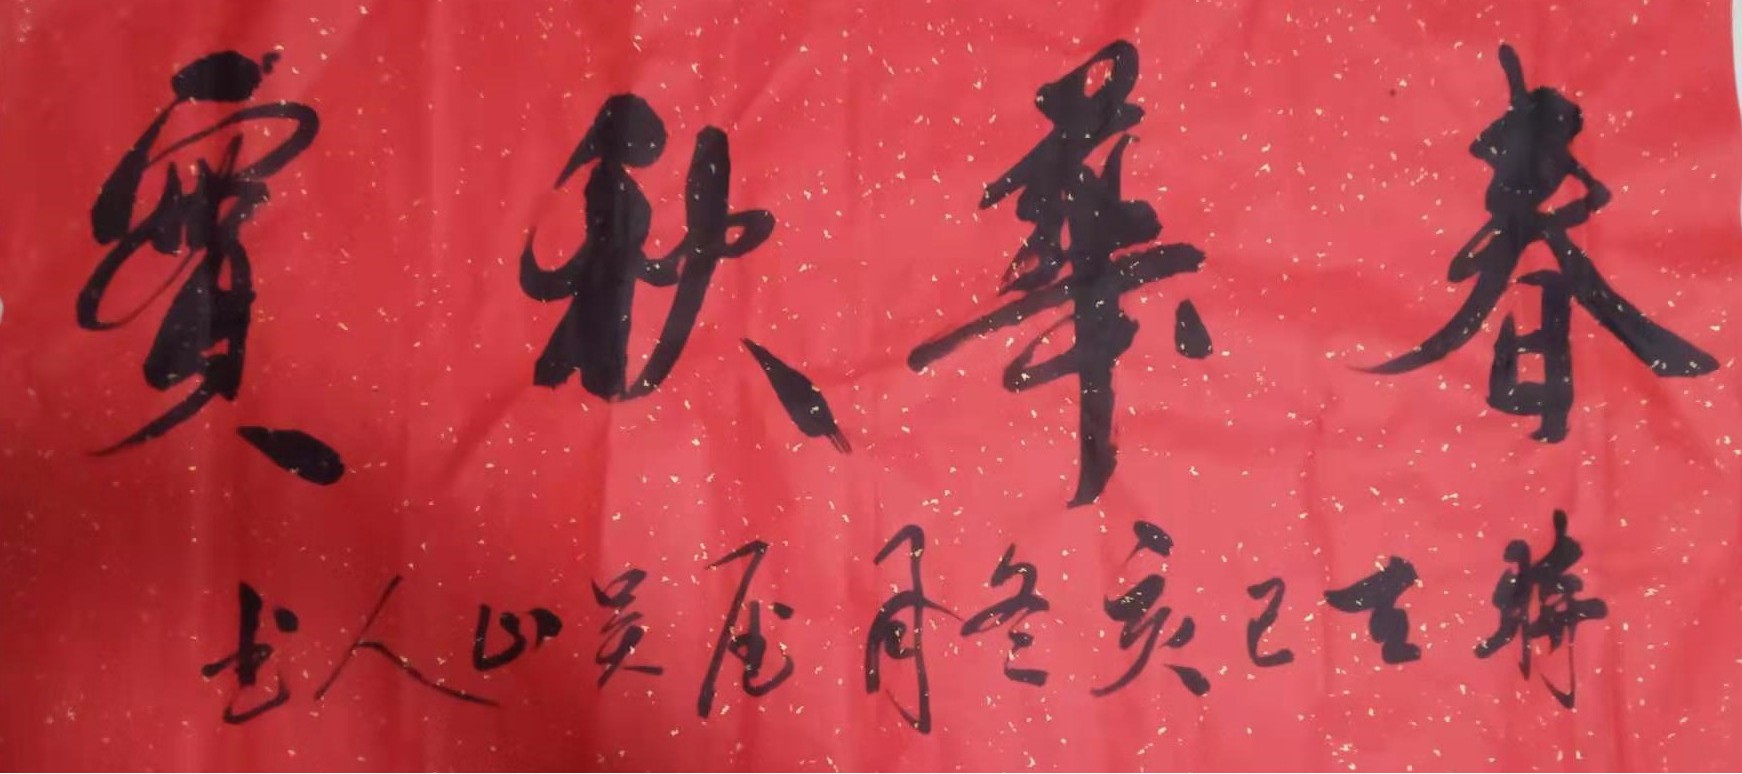 春華秋實
時在己亥冬月吴山人书